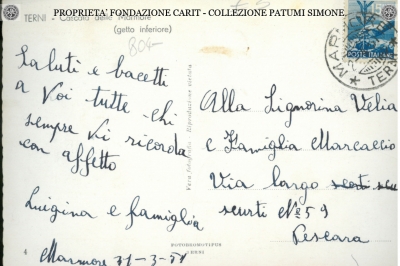 PROPRIETA' FONDAZIONE CARIT - COLLEZIONE PATUMI SIMONE
TERNI - Cascata delle Marmore
(getto inferiore)
804
Saluti e bacetti
a Voi tutte chi
sempre Vi ricorda
con affetto
Luigina e famiglia
Marmore 31-3-51
4
Vera fotografia Riproduzione vietata
TERNI
POSTE ITALIANE
MARMORE
TERNI
Alla Signorina Velia
e Famiglia Marcaccio
Via largo
scurti Nº 59
Pescara